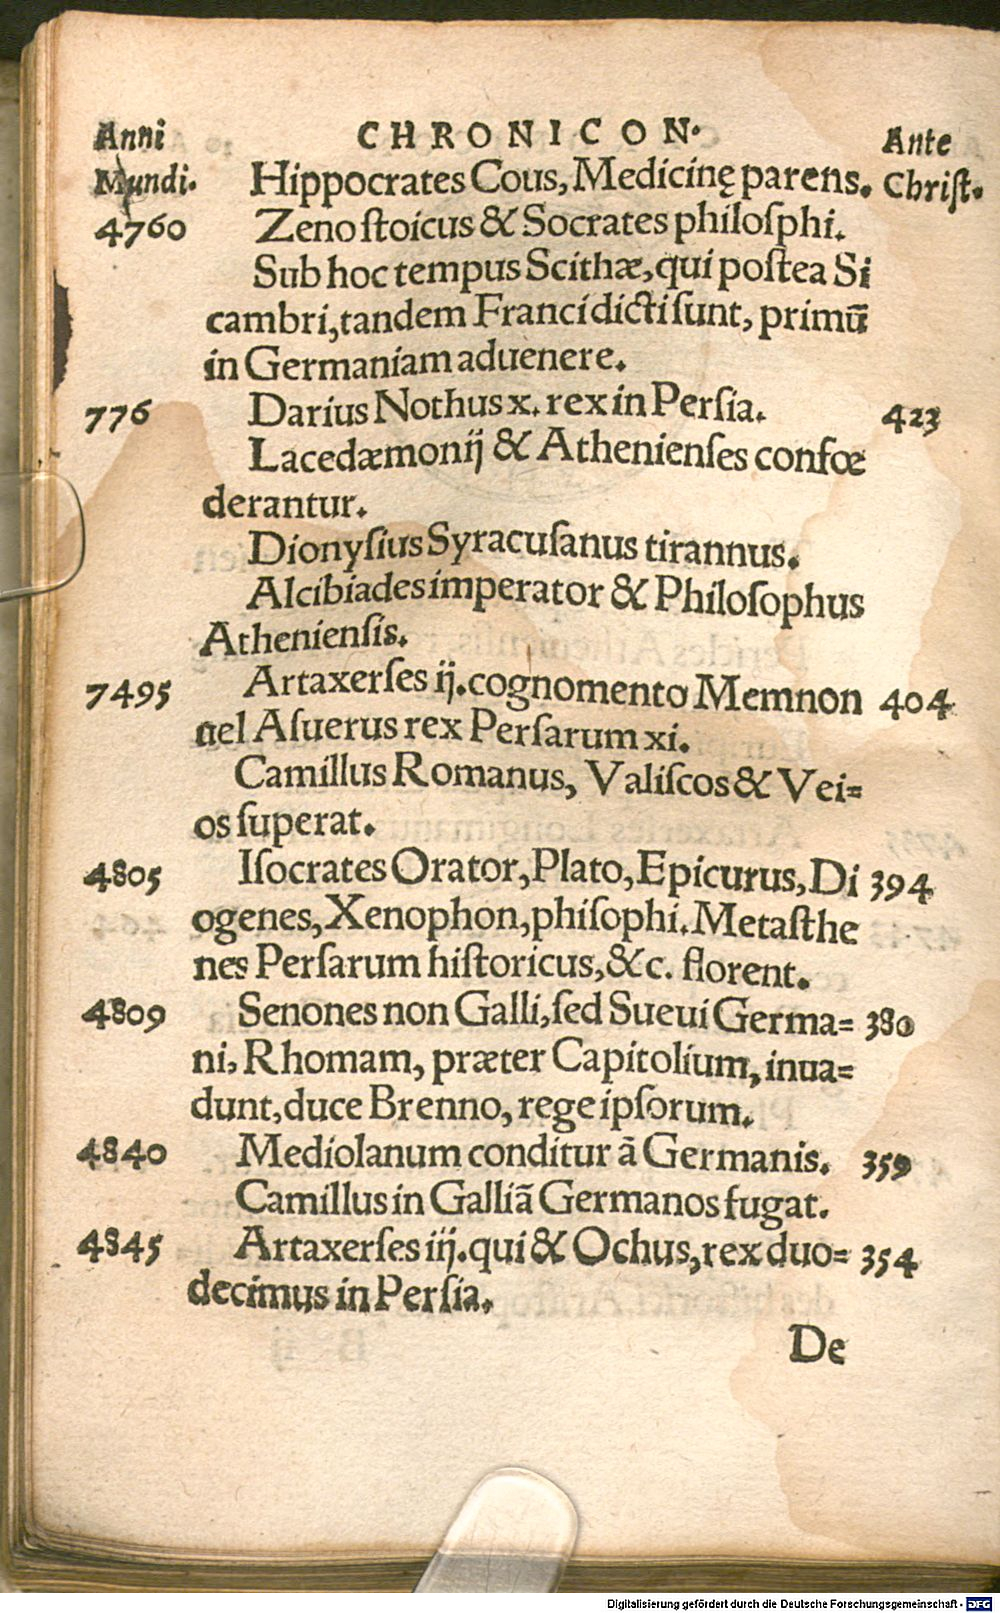 Anni CHRONICON. Ante
Mundi. Hippocrates Cous, Medicinę parens. Christ.
4760 Zeno ſtoicus & Socrates philoſphi.
Sub hoc tempus Scithæ, qui poſtea Si
cambri, tandem Franci dicti ſunt, primū
in Germaniam aduenere.
776 Darius Nothus x. rex in Perſia. 423
Lacedæmonij & Athenienſes confœ
derantur.
Dionyſius Syracuſanus tirannus.
Alcibiades imperator & Philoſophus
Athenienſis.
7495 Artaxerſes ij. cognomento Memnon 404
uel Aſuerus rex Perſarum xi.
Camillus Romanus, Valiſcos & Vei=
os ſuperat.
4805 Iſocrates Orator, Plato, Epicurus, Di 394
ogenes, Xenophon, phiſophi. Metaſthe
nes Perſarum hiſtoricus, &c. florent.
4809 Senones non Galli, ſed Sueui Germa= 380
ni, Rhomam, præter Capitolium, inua=
dunt, duce Brenno, rege ipſorum.
4840 Mediolanum conditur ā Germanis. 359
Camillus in Galliā Germanos fugat.
4845 Artaxerſes iij. qui & Ochus, rex duo= 354
decimus in Perſia.
De
Digitalisierung gefördert durch die Deutsche Forschungsgemeinschaft - DFG